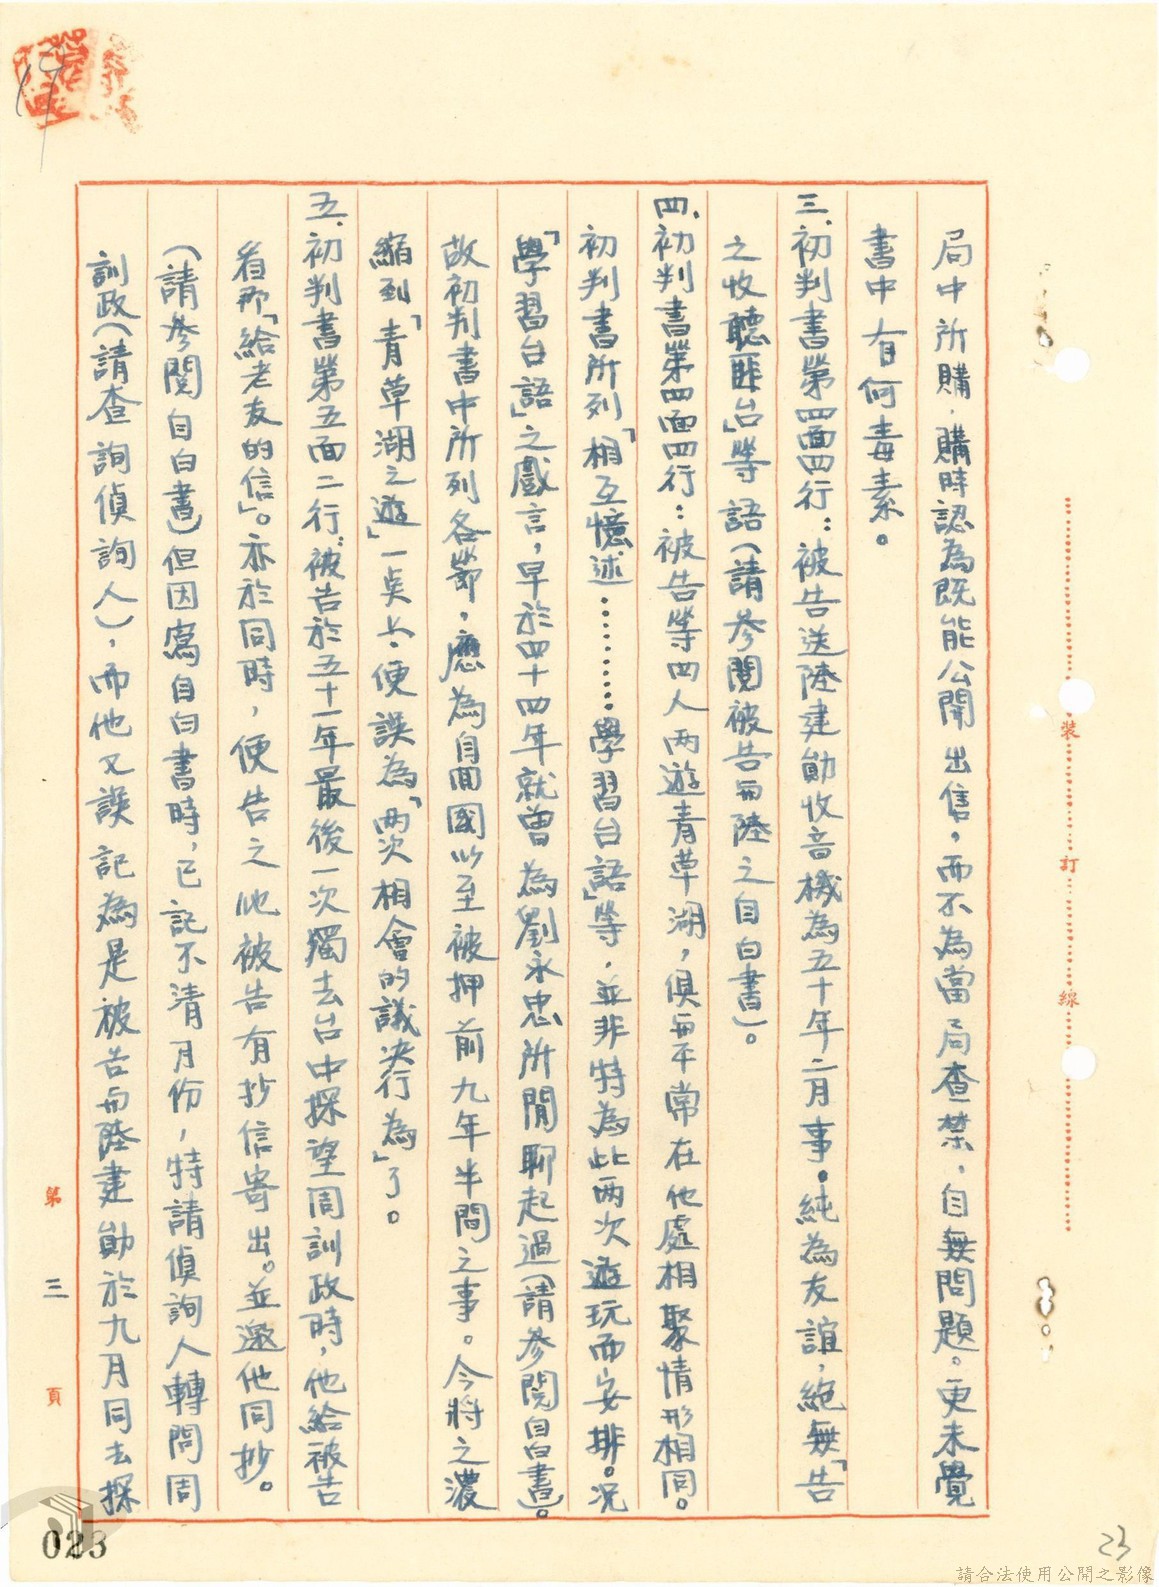 局中所購，購時認為既能公開出售，而不為當局查禁，自無問題。更未覺
書中有何毒素。
三、初判書第四面四行：被告送陸建勛收音機為五十年二月事。純為友誼，絕無「告
之收聽匪台」等語（請參閱被告與陸之自白書）。
四、初判書第四面四行：被告等四人兩遊青草湖，俱與平常在他處相聚情形相同。
初判書所列「相互憶述………學習台語」等，並非特為此兩次遊玩而安排。況
「學習台語」之戲言，早於四十四年就曾為劉永忠所閒聊起過（請參閱自白書）。
故初判書中所列各節，應為自回國以至被押前九年半間之事。今將之濃
縮到「青草湖之遊」一點上，便誤為「兩次相會的議決行為」了。
五、初判書第五面二行：被告於五十一年最後一次獨去台中探望周訓政時，他給被告
看那「給老友的信」。亦於同時，便告之他被告有抄信寄出。並邀他同抄。
（請參閱自白書）但因寫自白書時，已記不清月份，特請偵詢人轉問周
訓政（請查詢偵詢人），而他又誤記為是被告與陸建勛於九月同去探
裝訂線
第三頁
19
023
23
請合法使用公開之影像